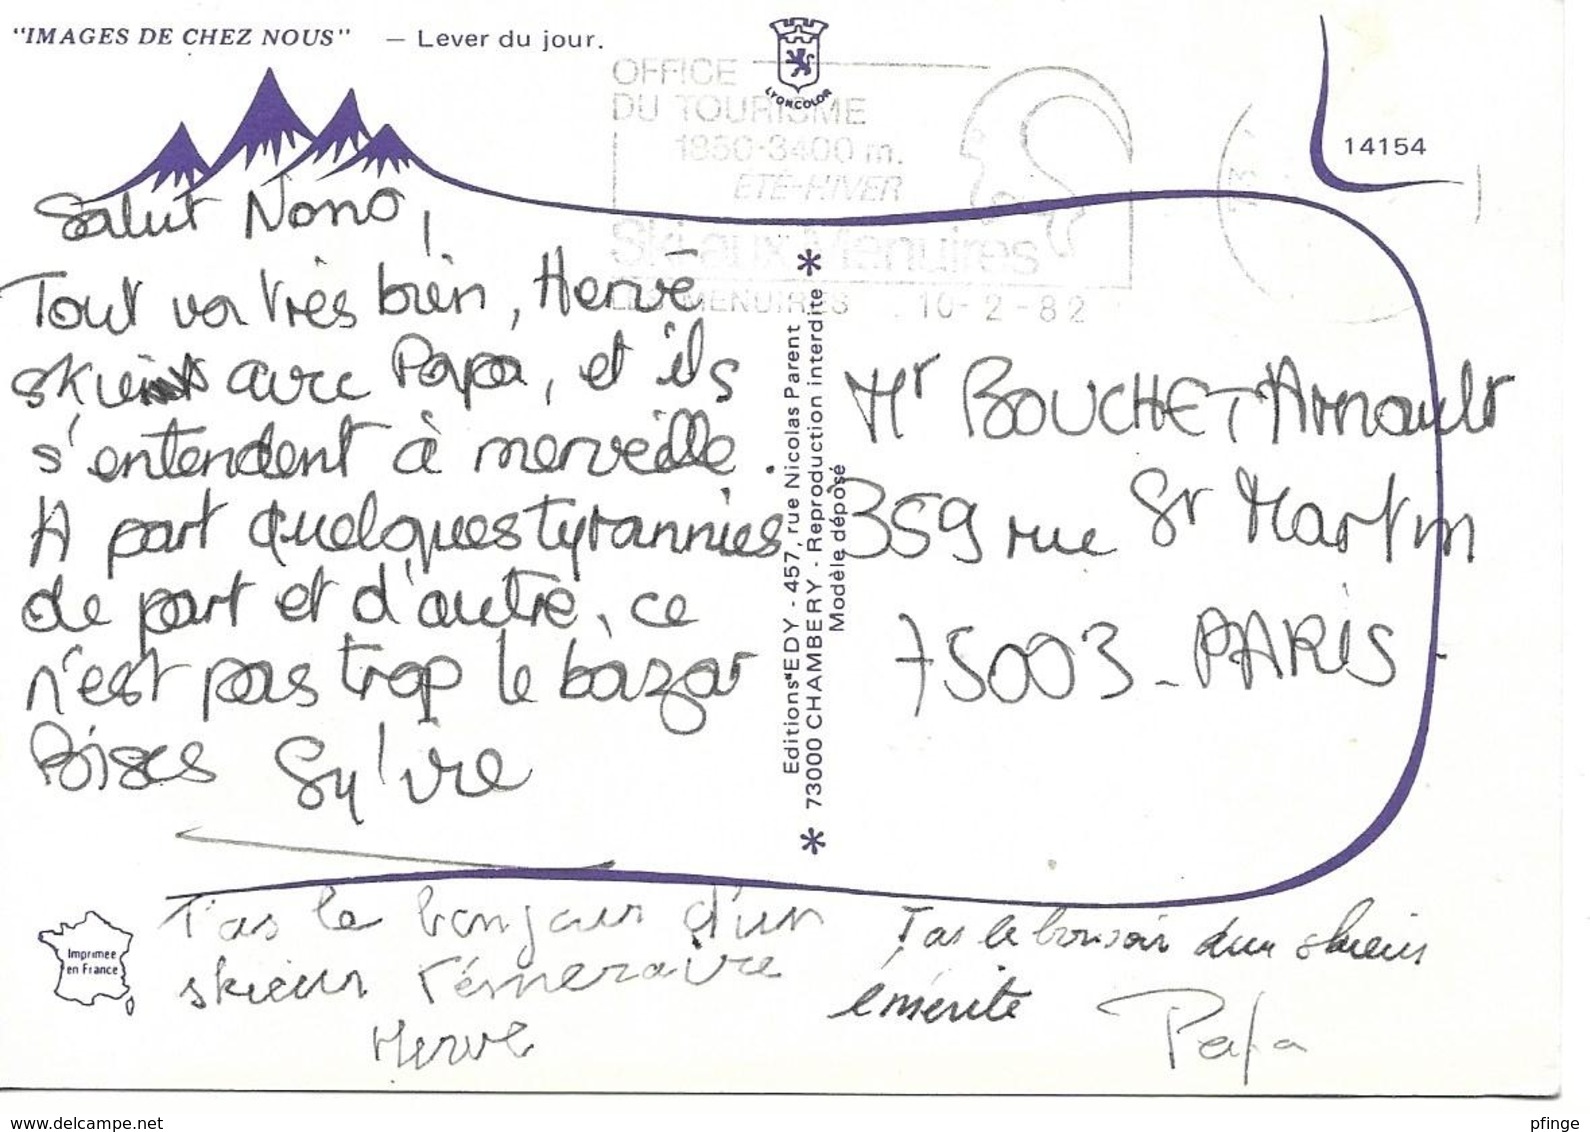 "IMAGES DE CHEZ NOUS" — Lever du jour.
LYONCOLOR
OFFICE
DU TOURISME
1850-3400 m.
ETÉ-HIVER
Ski aux Menuires
LES MENUIRES 10-2-82
14154
Salut Nono,
Tout va très bien, Hervé
skient avec Papa, et ils
s'entendent à merveille.
A part quelques tyrannies
de part et d'autre, ce
n'est pas trop le bazar
Bises Sylvie
T'as le bonjour d'un
skieur témeraire
Hervé
Editions "EDY - 457, rue Nicolas Parent
73000 CHAMBERY - Reproduction interdite
Modèle déposé
Mr BOUCHET Arnault
359 rue St Martin
75003 - PARIS -
T as le bonsoir d'un skieur
émérite
Papa
Imprimée
en France
www.delcampe.net
pfinge